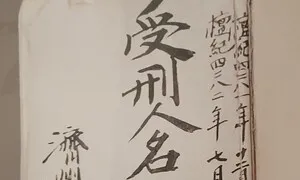 檀紀四二八一年 十二月
檀紀四二八二年 七月
受刑人名
濟州